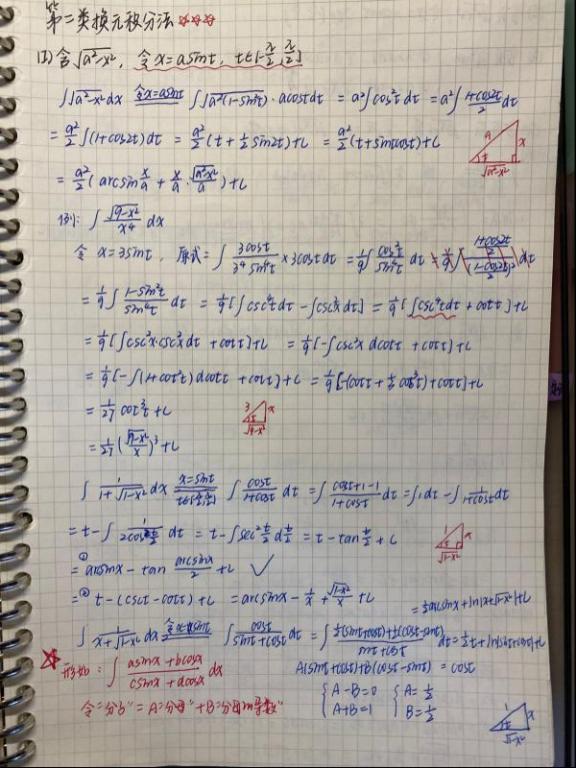 第二类换元积分法 ☆☆☆
(1) 含√(a²-x²), 令 x=asint, t∈[-π/2, π/2]
∫√(a²-x²)dx 令x=asint ∫√(a²(1-sin²t))·acostdt = a²∫cos²t dt = a²∫(1+cos2t)/2 dt
= a²/2 ∫(1+cos2t)dt = a²/2 (t+1/2 sin2t)+C = a²/2 (t+sintcost)+C
= a²/2 (arcsin x/a + x/a · √(a²-x²)/a)+C
a x t √(a²-x²)
例: ∫ √(9-x²)/x⁴ dx
令 x=3sint, 原式= ∫ 3cost/(3⁴sin⁴t) ×3costdt = 1/9∫ cos²t/sin⁴t dt
= 1/9∫ (1-sin²t)/sin⁴t dt = 1/9[∫csc⁴tdt - ∫csc²t dt] = 1/9[∫csc⁴tdt + cott]+C
= 1/9[∫csc²x·csc²x dt + cott]+C = 1/9[-∫csc²x dcott + cott]+C
= 1/9[-∫(1+cot²t)dcott + cott]+C = 1/9[-(cott+1/3cot³t)+cott]+C
= 1/27 cot³t+C
3 x t √(9-x²)
= 1/27(√(9-x²)/x)³+C
∫ 1/(1+√(1-x²)) dx x=sint t∈[-π/2,π/2] ∫ cost/(1+cost) dt = ∫ (cost+1-1)/(1+cost) dt = ∫1dt - ∫ 1/(1+cost) dt
= t-∫ 1/(2cos²t/2) dt = t-∫sec² t/2 d t/2 = t-tan t/2 + C
1 x t √(1-x²)
=① arcsinx - tan arcsinx/2 + C ✓
=② t-(csct-cott)+C = arcsinx - 1/x + √(1-x²)/x + C
= 1/2arcsinx+1/2ln|x+√(1-x²)|+C
∫ 1/(x+√(1-x²)) dx 令x=sint ∫ cost/(sint+cost) dt = ∫ (1/2(sint+cost)+1/2(cost-sint))/(sint+cost) dt = 1/2t+1/2ln|sint+cost|+C
☆ 形如: ∫ (asinx+bcosx)/(csinx+dcosx) dx
A(sint+cost)+B(cost-sint) = cost
令"分子"=A"分母"+B"分母的导数"
A-B=0 A=1/2
A+B=1 B=1/2
1 x t √(1-x²)